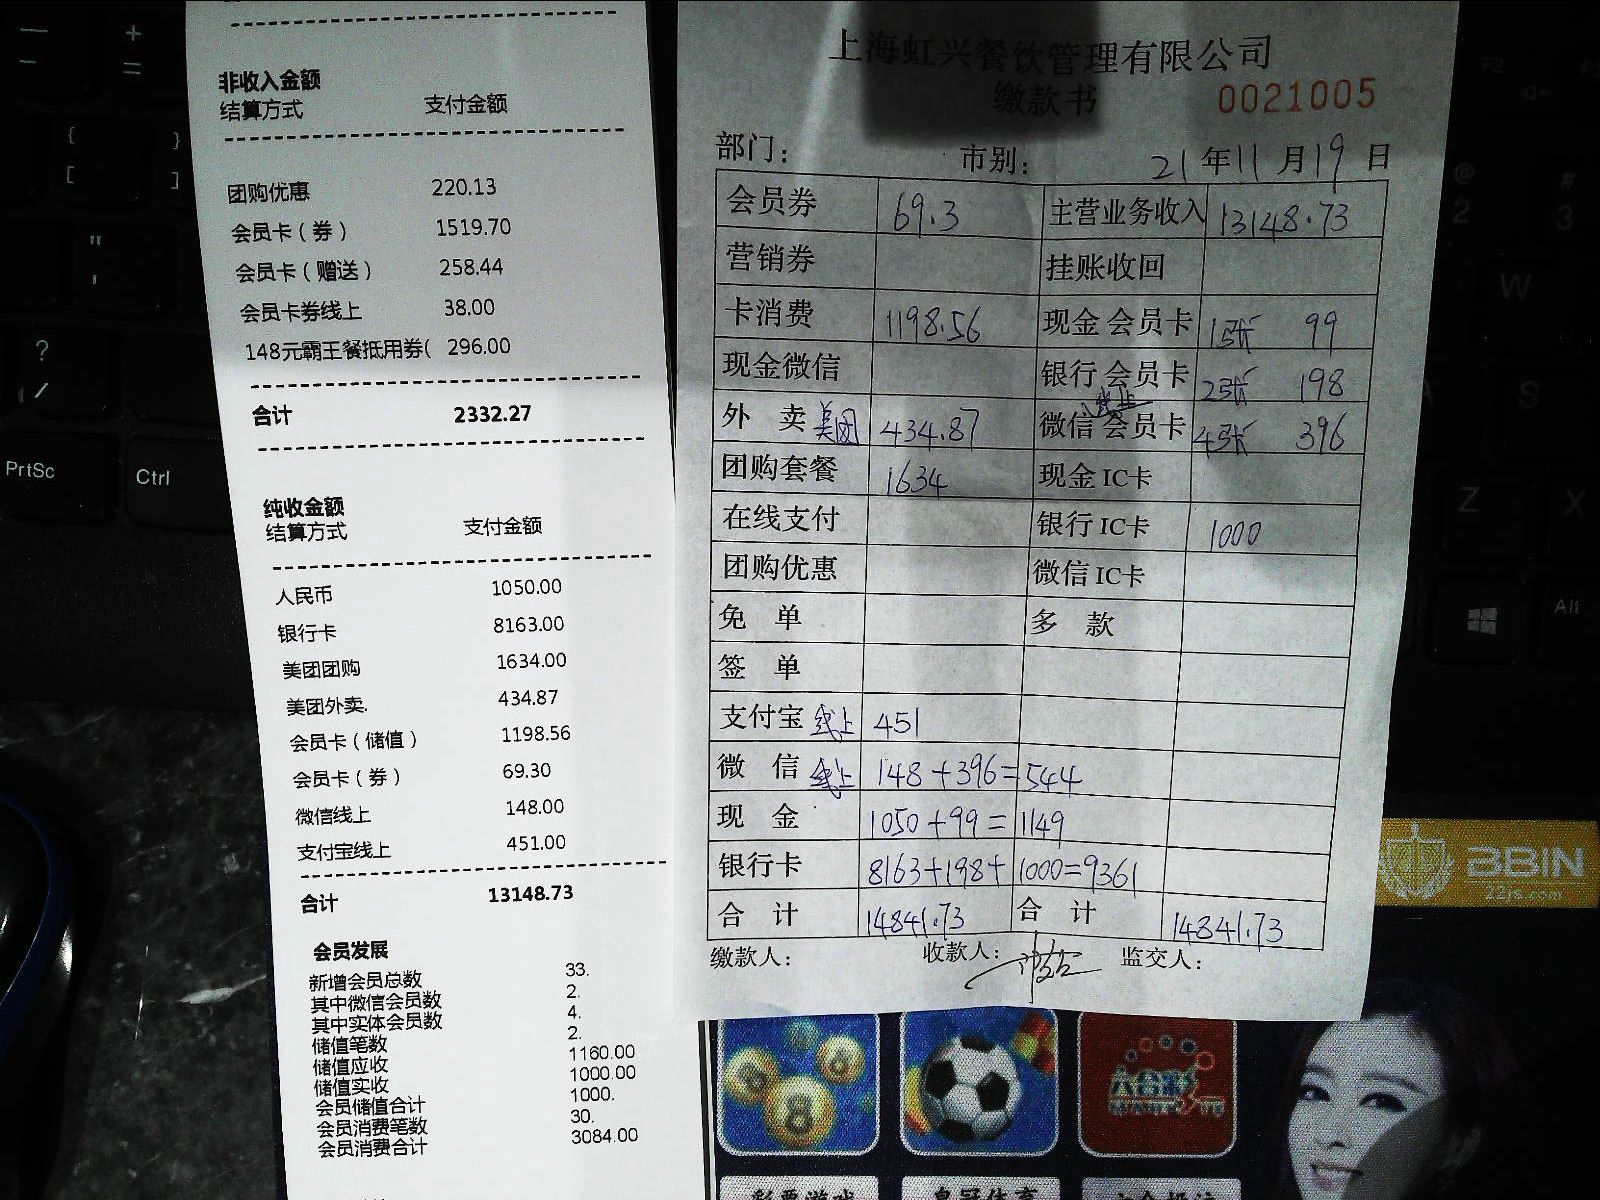 非收入金额
结算方式 支付金额
团购优惠 220.13
会员卡（券） 1519.70
会员卡（赠送） 258.44
会员卡券线上 38.00
148元霸王餐抵用券( 296.00
合计 2332.27
纯收金额
结算方式 支付金额
人民币 1050.00
银行卡 8163.00
美团团购 1634.00
美团外卖. 434.87
会员卡（储值） 1198.56
会员卡（券） 69.30
微信线上 148.00
支付宝线上 451.00
合计 13148.73
会员发展
新增会员总数 33.
其中微信会员数 2.
其中实体会员数 4.
储值笔数 2.
储值应收 1160.00
储值实收 1000.00
会员储值合计 1000.
会员消费笔数 30.
会员消费合计 3084.00
上海虹兴餐饮管理有限公司
缴款书 0021005
部门： 市别： 21 年 11 月 19 日
会员券 69.3 主营业务收入 13148.73
营销券 挂账收回
卡消费 1198.56 现金 会员卡 1张 99
现金微信 银行 会员卡 2张 198
外 卖 美团 434.87 微信 线上 会员卡 4张 396
团购套餐 1634 现金 IC卡
在线支付 银行 IC卡 1000
团购优惠 微信 IC卡
免 单 多 款
签 单
支付宝 线上 451
微 信 线上 148+396=544
现 金 1050+99=1149
银行卡 8163+198+1000=9361
合 计 14841.73 合 计 14841.73
缴款人： 收款人： 监交人：
PrtSc
Ctrl
Alt
BBIN
22js.com
彩票游戏
皇冠体育